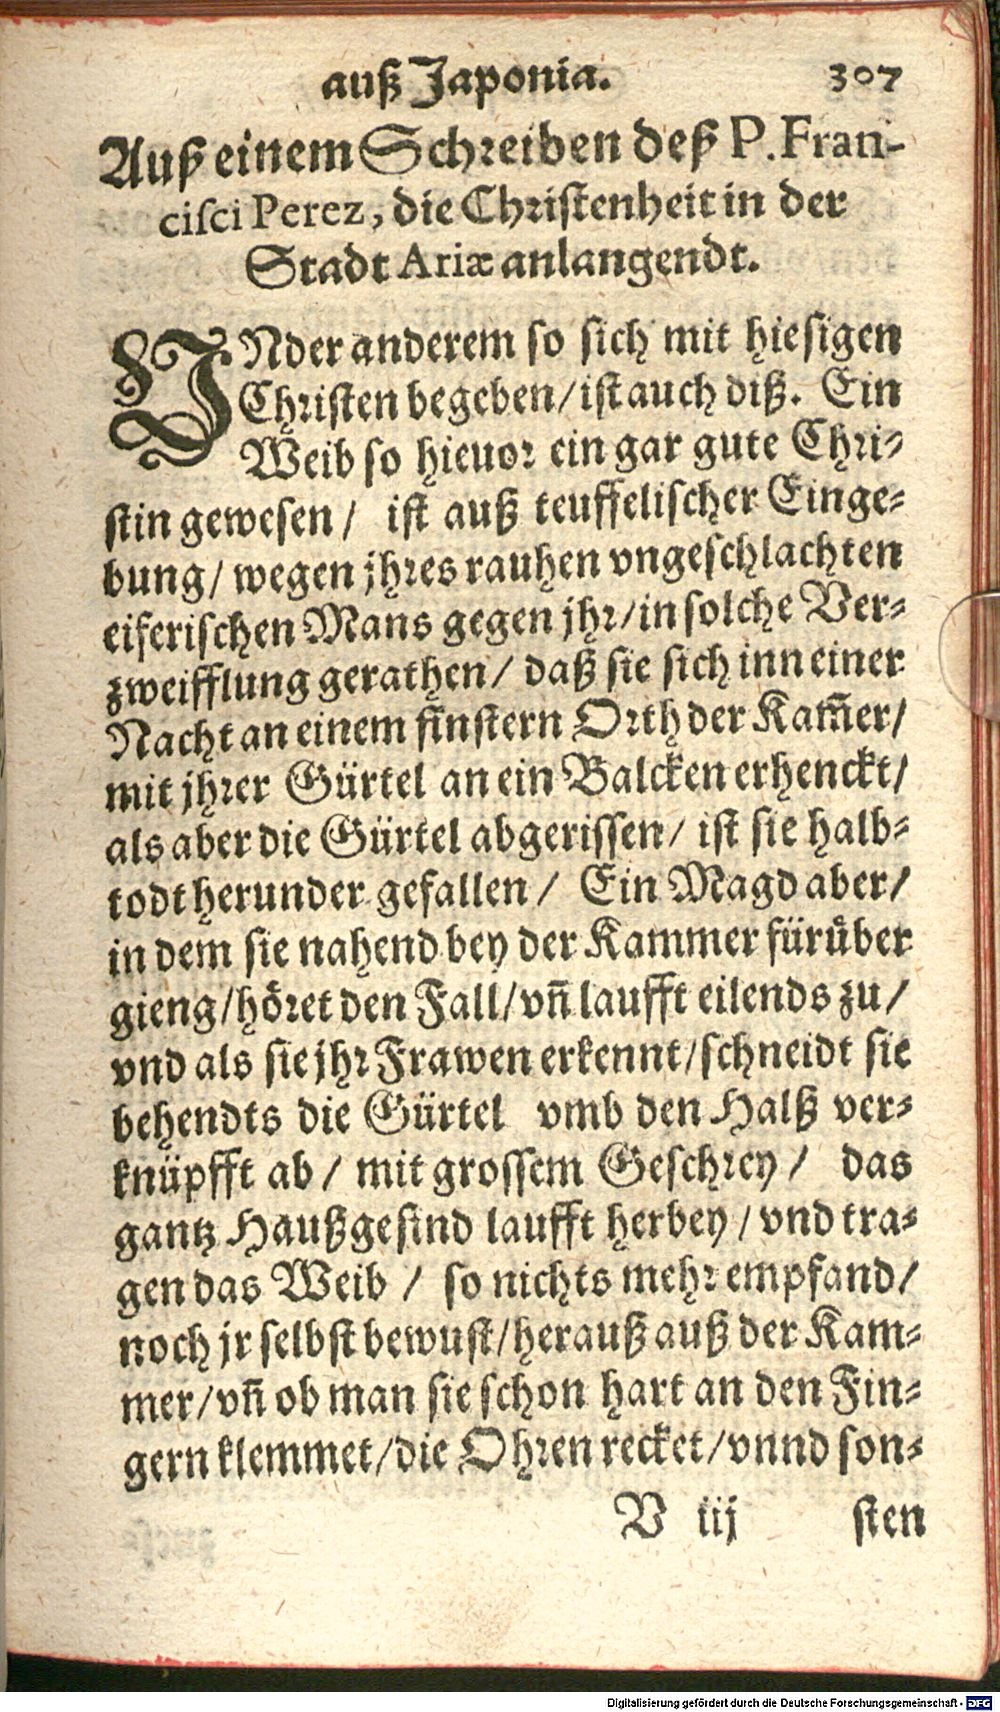 auß Japonia. 307
Auß einem Schreiben deß P. Fran-
cisci Perez, die Christenheit in der
Stadt Ariæ anlangendt.
VNder anderem so sich mit hiesigen
Christen begeben/ ist auch diß. Ein
Weib so hieuor ein gar gute Chri-
stin gewesen/ ist auß teuffelischer Einge-
bung/ wegen jhres rauhen vngeschlachten
eiferischen Mans gegen jhr/ in solche Ver-
zweifflung gerathen/ daß sie sich inn einer
Nacht an einem finstern Orth der Kam̃er/
mit jhrer Gürtel an ein Balcken erhenckt/
als aber die Gürtel abgerissen/ ist sie halb-
todt herunder gefallen/ Ein Magd aber/
in dem sie nahend bey der Kammer fürüber
gieng/ höret den Fall/ vñ laufft eilends zu/
vnd als sie jhr Frawen erkennt/ schneidt sie
behendts die Gürtel vmb den Halß ver-
knüpfft ab/ mit grossem Geschrey/ das
gantz Haußgesind laufft herbey/ vnd tra-
gen das Weib/ so nichts mehr empfand/
noch jr selbst bewust/ herauß auß der Kam-
mer/ vñ ob man sie schon hart an den Fin-
gern klemmet/ die Ohren recket/ vnnd son-
V iij sten
Digitalisierung gefördert durch die Deutsche Forschungsgemeinschaft - DFG